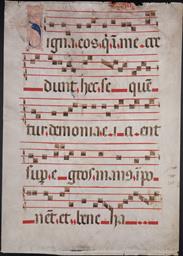 Signa eos, q̃i ī me cre
dunt, hec se quẽ
tur: demonia e i ci ent
sup. e gros man9 īpo
nẽt. et bene ha